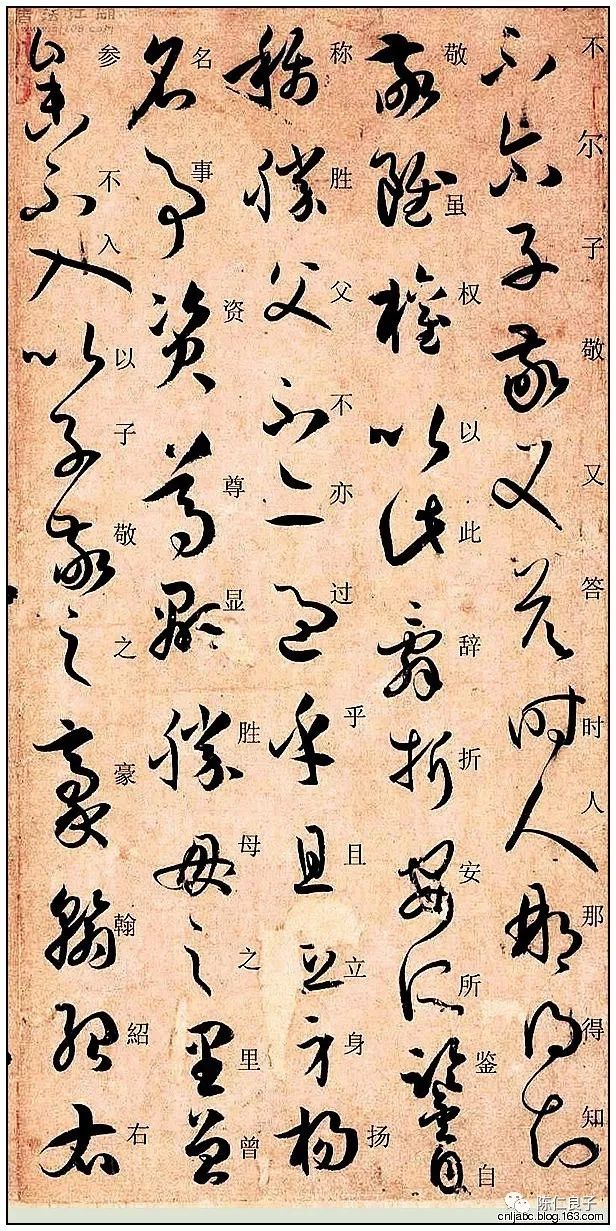 不尔子敬又答时人那得知
敬虽权以此辞折安所鉴自
称胜父不亦过乎且立身扬
名事资尊显胜母之里曾
参不入以子敬之豪翰紹右
cnljabc.blog.163.com